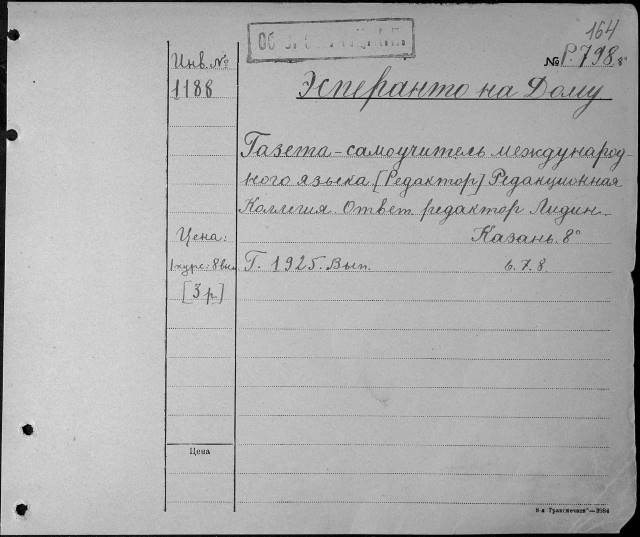 164
Инв. №
№ Р.798 8°
1188
Эсперанто на Дому
Газета - самоучитель международ-
ного языка [Редактор] Редакционная
Коллегия. Ответ. редактор Лидин.
Цена:
Казань. 8°
1 курс: 8 вып.
Г. 1925. Вып.
6. 7. 8.
[3 р.]
Цена